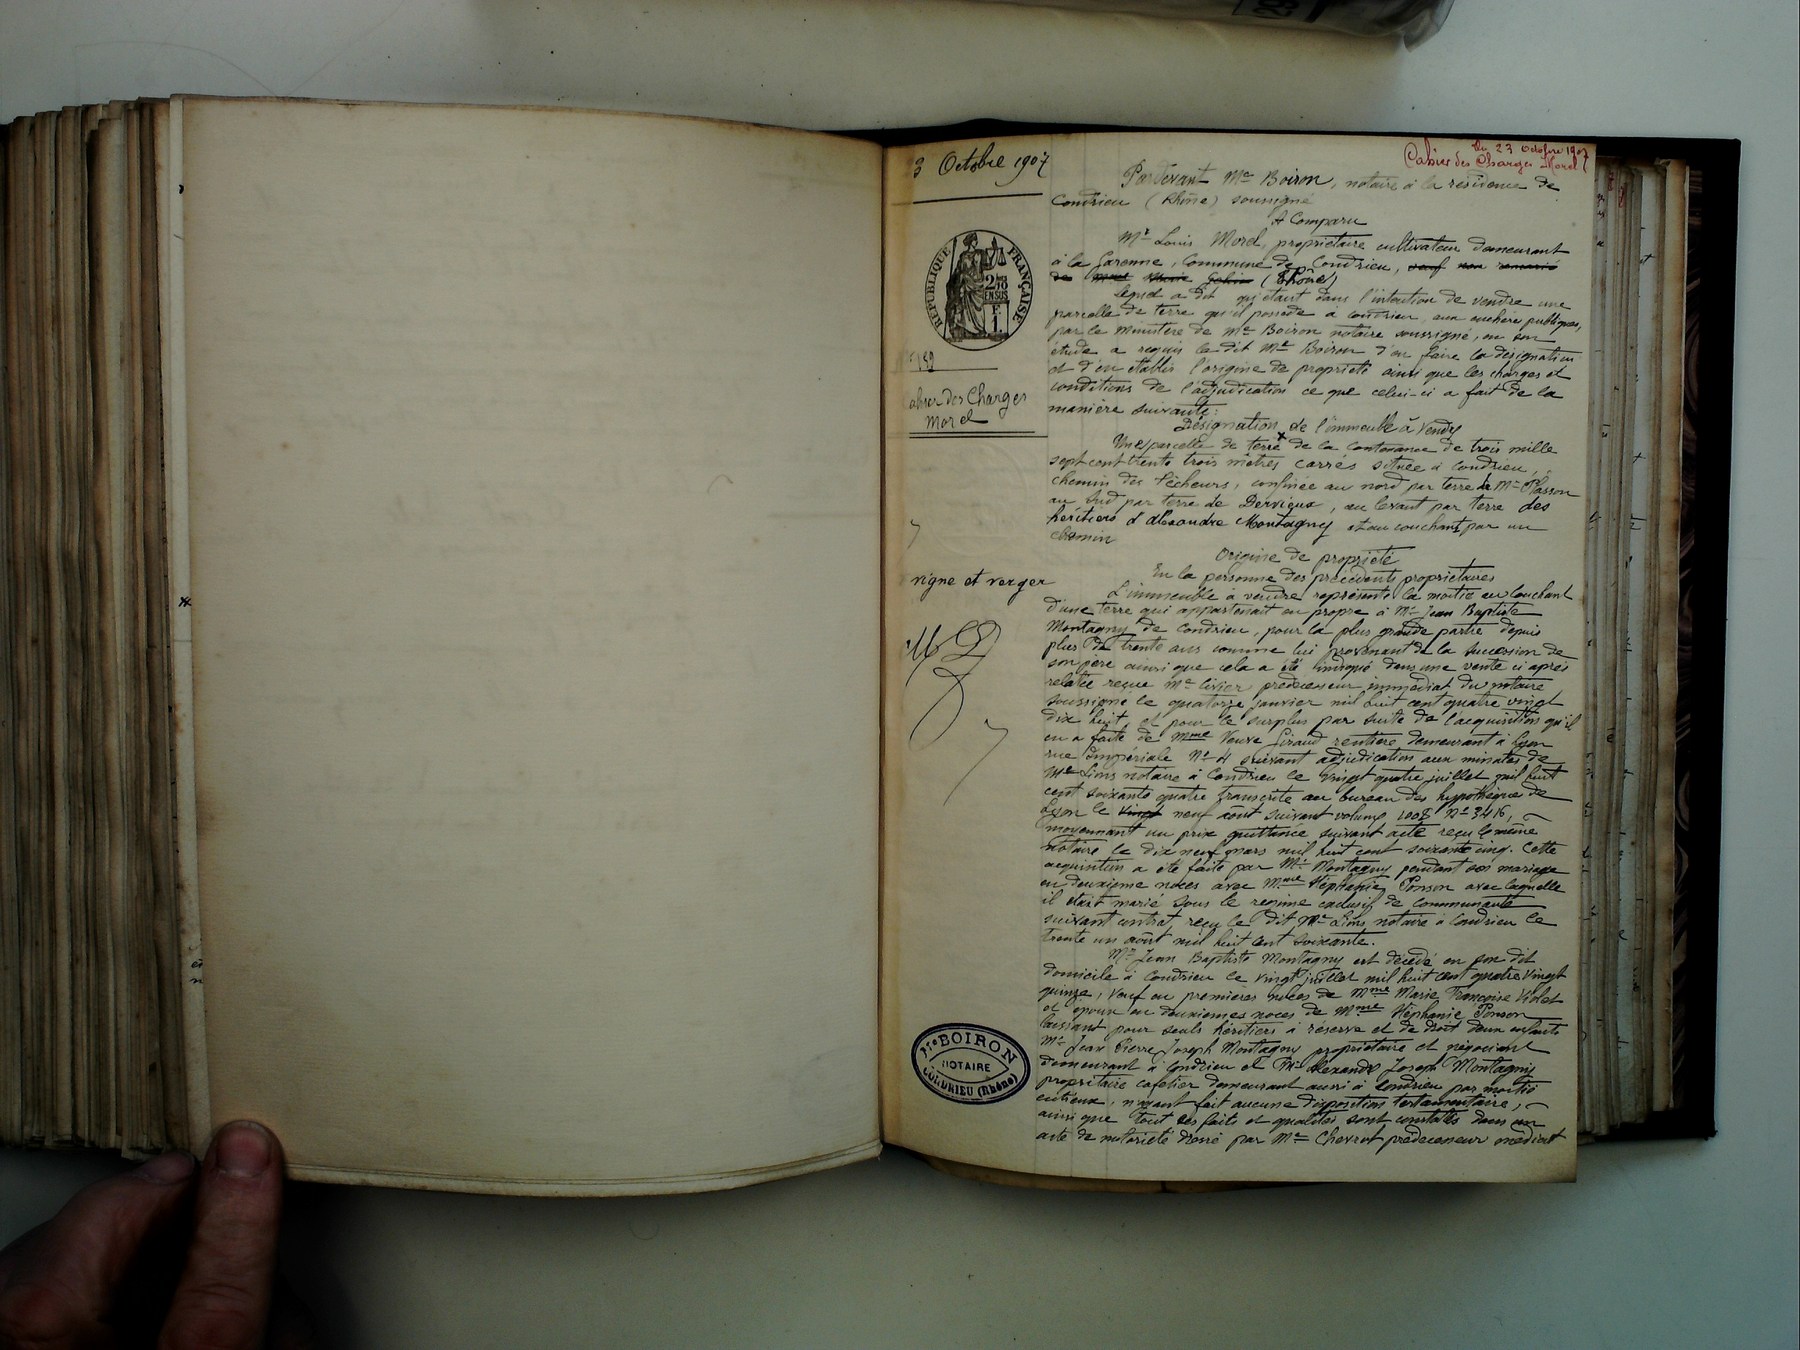 23 Octobre 1907
Du 23 Octobre 1907
Cahier des Charges Morel
RÉPUBLIQUE FRANÇAISE
2/10
EN SUS
F.
1.
Cahier des Charges
Morel
Pardevant Me Boiron, notaire à la résidence de
Condrieu (Rhône) soussigné
A Comparu
Mr Louis Morel, propriétaire cultivateur demeurant
à la Garenne, Commune de Condrieu, veuf non remarié
de (Rhône)
Lequel a dit qu'étant dans l'intention de vendre une
parcelle de terre qu'il possède à Condrieu, aux enchères publiques,
par le Ministère de Me Boiron notaire soussigné, en son
étude a requis le dit Me Boiron d'en faire la désignation
et d'en établir l'origine de propriété ainsi que les charges et
conditions de l'adjudication ce que celui-ci a fait de la
manière suivante:
Désignation de l'immeuble à Vendre
Une parcelle de terre de la contenance de trois mille
sept cent trente trois mètres carrés située à Condrieu,
chemin des Pêcheurs, confinée au nord par terre de Mr Plasson
au Sud par terre de Dervieux, au levant par terre des
héritiers d'Alexandre Montagny et au couchant par un
chemin
vigne et verger
Origine de propriété
En la personne des précédents propriétaires
L'immeuble à vendre représente la moitié au Couchant
d'une terre qui appartenait en propre à Mr Jean Baptiste
Montagny de Condrieu, pour la plus grande partie depuis
plus de trente ans comme lui provenant de la succession de
son père ainsi que cela a été indiqué dans une vente ci après
relatée reçue Me Civier prédécesseur immédiat du notaire
soussigné le quatorze janvier mil huit cent quatre vingt
dix huit, et pour le surplus par suite de l'acquisition qu'il
en a faite de Mme Veuve Giraud rentière demeurant à Lyon
rue Impériale No 4 suivant adjudication aux minutes de
Me Lions notaire à Condrieu le vingt quatre juillet mil huit
cent soixante quatre transcrite au bureau des hypothèques de
Lyon le vingt neuf août suivant volume 1008 No 3416,
moyennant un prix quittancé suivant acte reçu le même
notaire le dix neuf mars mil huit cent soixante cinq. Cette
acquisition a été faite par Mr Montagny pendant son mariage
en deuxième noces avec Mme Stéphanie Ponson avec laquelle
il était marié sous le régime exclusif de communauté
suivant contrat reçu le dit Me Lions notaire à Condrieu le
trente un août mil huit cent soixante.
Mr Jean Baptiste Montagny est décédé en son dit
domicile à Condrieu le vingt juillet mil huit cent quatre vingt
quinze, veuf en premières noces de Mme Marie Françoise Violet
et époux en deuxièmes noces de Mme Stéphanie Ponson
laissant pour seuls héritiers à réserve et de droit deux enfants
Mr Jean Pierre Joseph Montagny propriétaire et négociant
demeurant à Condrieu et Mr Alexandre Joseph Montagny
propriétaire cafetier demeurant aussi à Condrieu par moitié
entr'eux, n'ayant fait aucune disposition testamentaire,
ainsi que tout ces faits et qualités sont constatés dans un
acte de notoriété dressé par Me Chevrot prédécesseur médiat
Me BOIRON
NOTAIRE
CONDRIEU (Rhône)